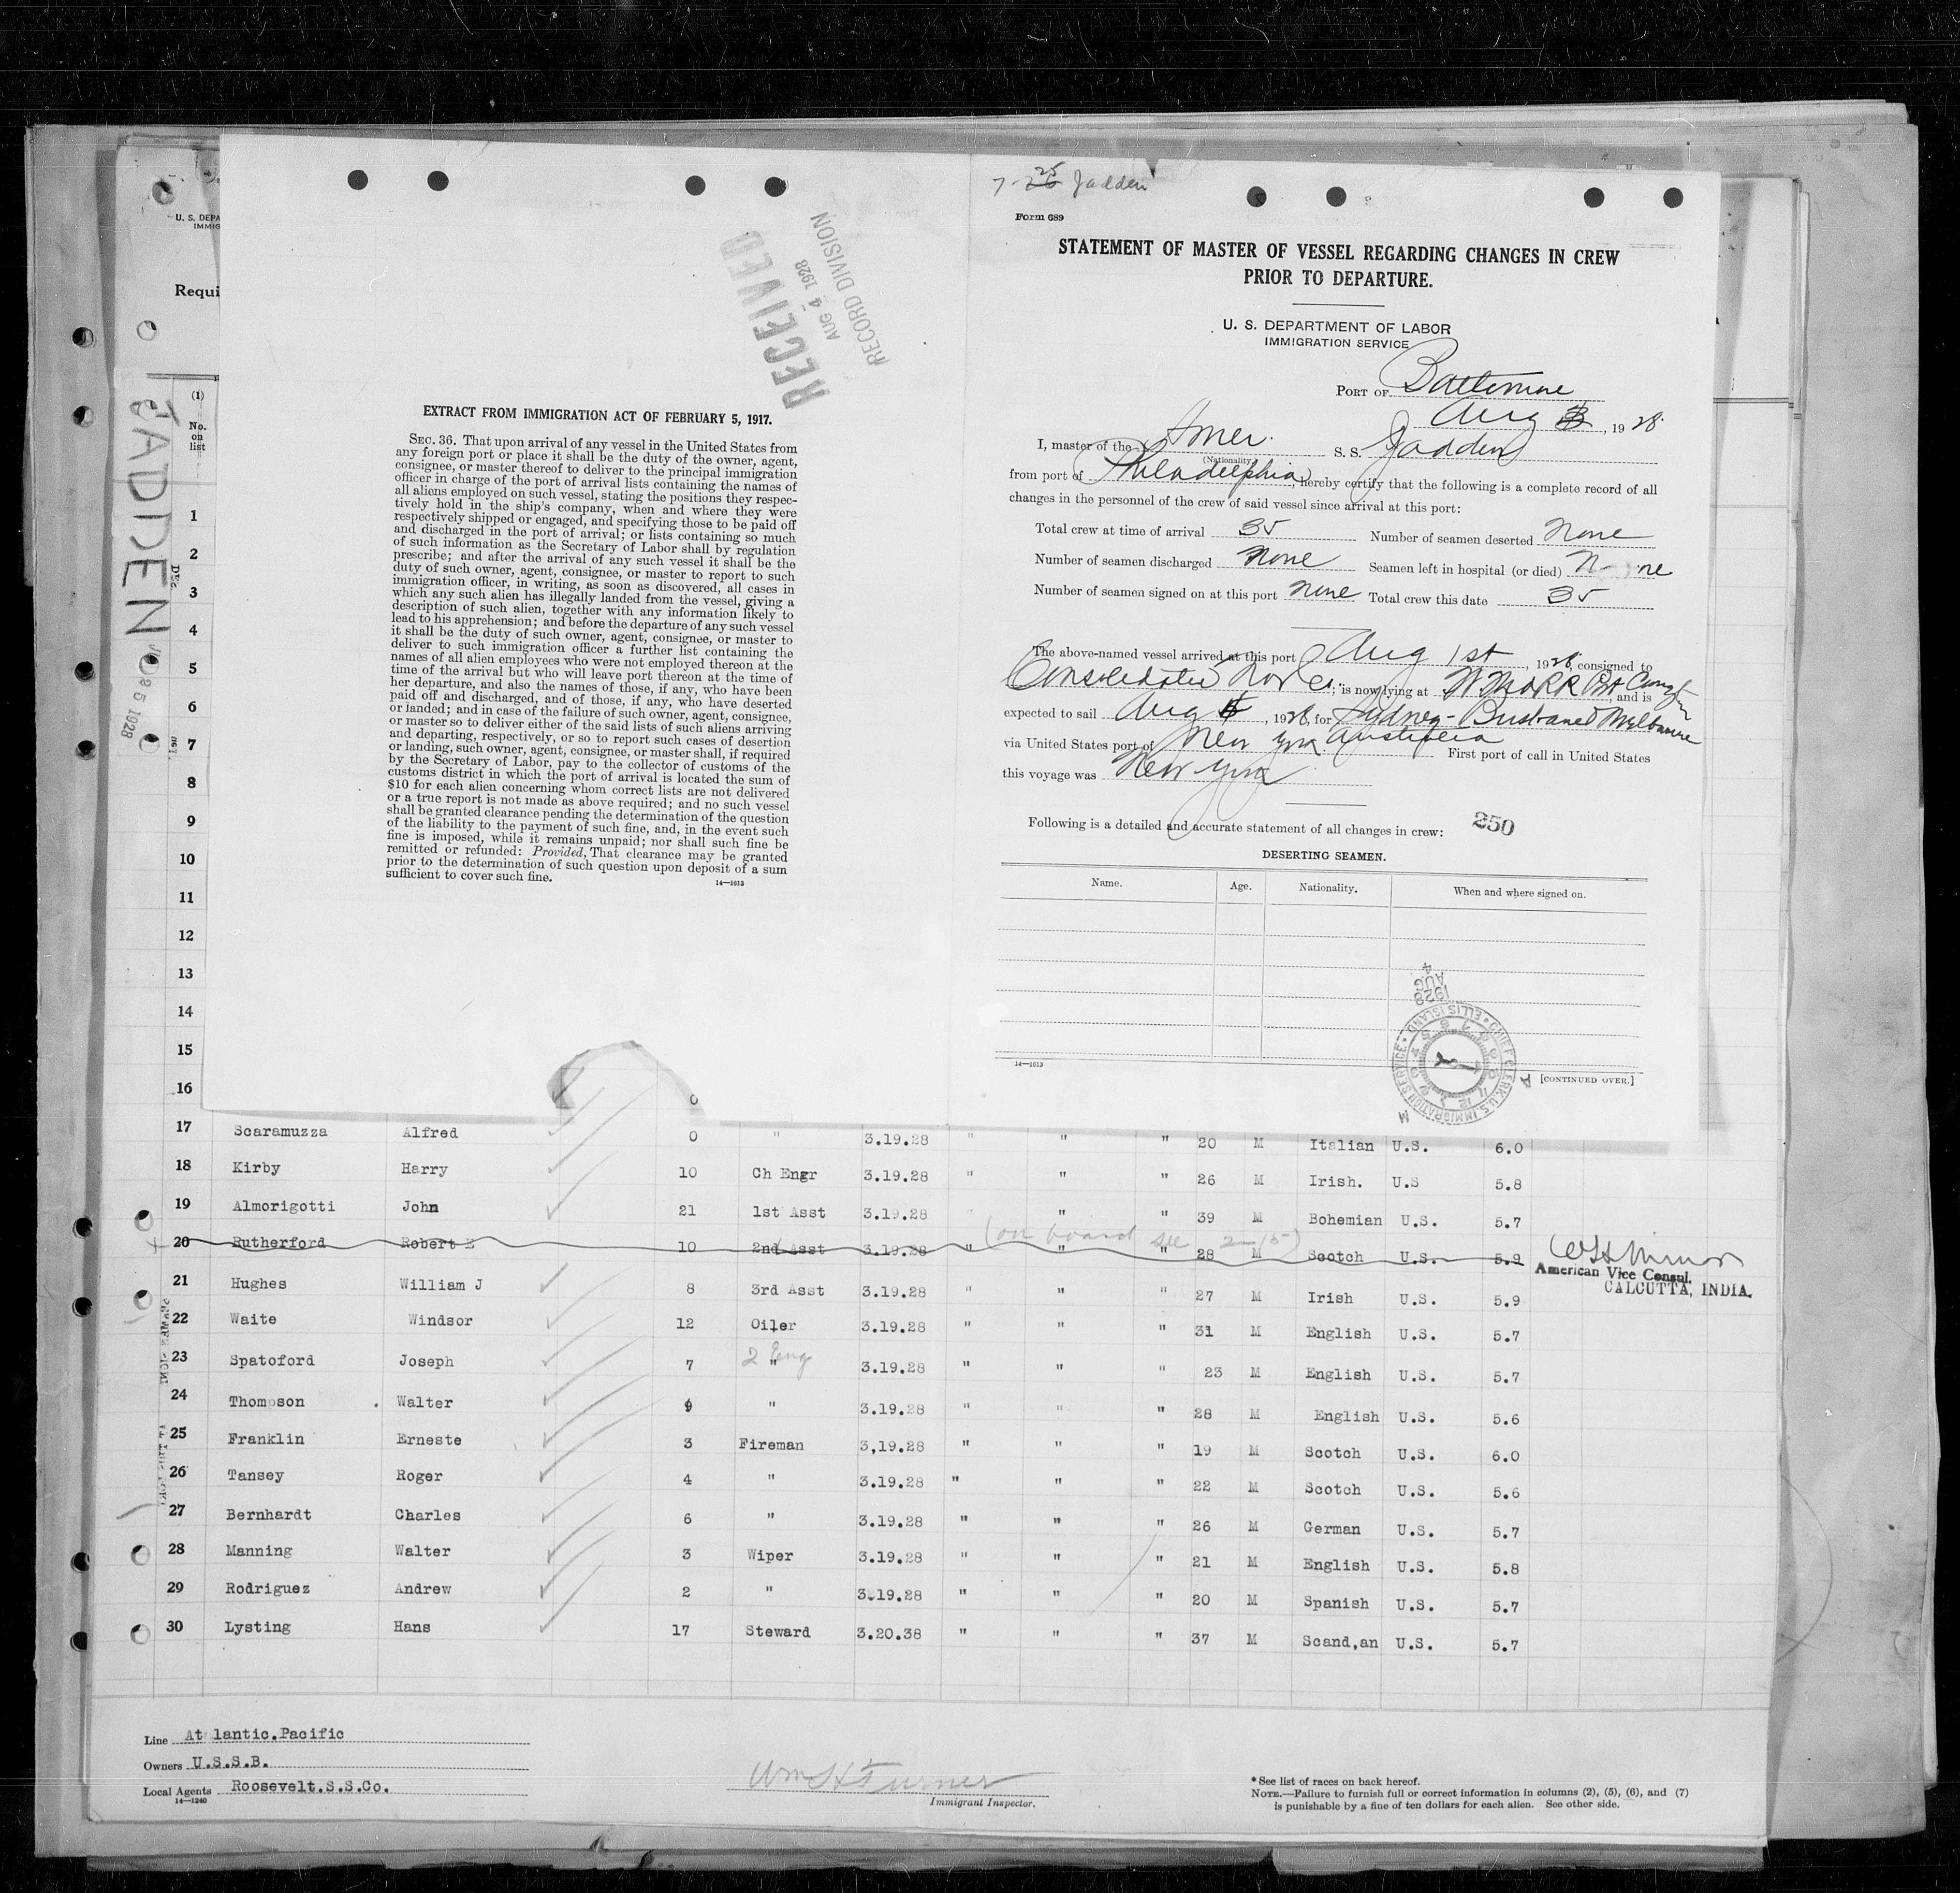 7-25 Jadden
Form 689
STATEMENT OF MASTER OF VESSEL REGARDING CHANGES IN CREW
PRIOR TO DEPARTURE.
U. S. DEPARTMENT OF LABOR
IMMIGRATION SERVICE
PORT OF Baltimore
Aug 3, 1928.
I, master of the Amer. S. S. Jadden
(Nationality.)
from port of Philadelphia, hereby certify that the following is a complete record of all
changes in the personnel of the crew of said vessel since arrival at this port:
Total crew at time of arrival 35 Number of seamen deserted none
Number of seamen discharged none Seamen left in hospital (or died)
Number of seamen signed on at this port none Total crew this date 35
The above-named vessel arrived at this port Aug 1st, 1928, consigned to
Consolidated Nav Co, is now lying at and is
expected to sail Aug , 1928, for Sydney - Busbane Melbourne
Australia
via United States port of New York First port of call in United States
this voyage was New York
Following is a detailed and accurate statement of all changes in crew: 250
DESERTING SEAMEN.
Name. Age. Nationality. When and where signed on.
14—1613
[CONTINUED OVER.]
CHIEF CLERK, U.S. IMMIGRATION SERVICE • ELLIS ISLAND •
1928 AUG 4
RECEIVED
AUG 4 1928
RECORD DIVISION
EXTRACT FROM IMMIGRATION ACT OF FEBRUARY 5, 1917.
SEC. 36. That upon arrival of any vessel in the United States from
any foreign port or place it shall be the duty of the owner, agent,
consignee, or master thereof to deliver to the principal immigration
officer in charge of the port of arrival lists containing the names of
all aliens employed on such vessel, stating the positions they respec-
tively hold in the ship's company, when and where they were
respectively shipped or engaged, and specifying those to be paid off
and discharged in the port of arrival; or lists containing so much
of such information as the Secretary of Labor shall by regulation
prescribe; and after the arrival of any such vessel it shall be the
duty of such owner, agent, consignee, or master to report to such
immigration officer, in writing, as soon as discovered, all cases in
which any such alien has illegally landed from the vessel, giving a
description of such alien, together with any information likely to
lead to his apprehension; and before the departure of any such vessel
it shall be the duty of such owner, agent, consignee, or master to
deliver to such immigration officer a further list containing the
names of all alien employees who were not employed thereon at the
time of the arrival but who will leave port thereon at the time of
her departure, and also the names of those, if any, who have been
paid off and discharged, and of those, if any, who have deserted
or landed; and in case of the failure of such owner, agent, consignee,
or master so to deliver either of the said lists of such aliens arriving
and departing, respectively, or so to report such cases of desertion
or landing, such owner, agent, consignee, or master shall, if required
by the Secretary of Labor, pay to the collector of customs of the
customs district in which the port of arrival is located the sum of
$10 for each alien concerning whom correct lists are not delivered
or a true report is not made as above required; and no such vessel
shall be granted clearance pending the determination of the question
of the liability to the payment of such fine, and, in the event such
fine is imposed, while it remains unpaid; nor shall such fine be
remitted or refunded: Provided, That clearance may be granted
prior to the determination of such question upon deposit of a sum
sufficient to cover such fine.
14—1613
U. S. DEPA
IMMIG
Requi
JADDEN
5 1928
(1)
No.
on
list
1
2
3
4
5
6
7
8
9
10
11
12
13
14
15
16
17 Scaramuzza Alfred 0 " 3.19.28 " " " 20 M Italian U.S. 6.0
18 Kirby Harry 10 Ch Engr 3.19.28 " " " 26 M Irish. U.S 5.8
19 Almorigotti John 21 1st Asst 3.19.28 " " " 39 M Bohemian U.S. 5.7
(on board see 2-15)
20 Rutherford Robert E 10 2nd Asst 3.19.28 " " " 28 M Scotch U.S. 5.9
American Vice Consul.
CALCUTTA, INDIA.
21 Hughes William J 8 3rd Asst 3.19.28 " " " 27 M Irish U.S. 5.9
22 Waite Windsor 12 Oiler 3.19.28 " " " 31 M English U.S. 5.7
23 Spatoford Joseph 7 " 2 Eng 3.19.28 " " " 23 M English U.S. 5.7
24 Thompson Walter 9 " 3.19.28 " " " 28 M English U.S. 5.6
25 Franklin Erneste 3 Fireman 3,19.28 " " " 19 M Scotch U.S. 6.0
26 Tansey Roger 4 " 3.19.28 " " " 22 M Scotch U.S. 5.6
27 Bernhardt Charles 6 " 3.19.28 " " " 26 M German U.S. 5.7
28 Manning Walter 3 Wiper 3.19.28 " " " 21 M English U.S. 5.8
29 Rodriguez Andrew 2 " 3.19.28 " " " 20 M Spanish U.S. 5.7
30 Lysting Hans 17 Steward 3.20.38 " " " 37 M Scand,an U.S. 5.7
Line Atlantic.Pacific
Owners U.S.S.B.
Local Agents Roosevelt.S.S.Co.
14—1240
Wm H Turner
Immigrant Inspector.
* See list of races on back hereof.
NOTE.—Failure to furnish full or correct information in columns (2), (5), (6), and (7)
is punishable by a fine of ten dollars for each alien. See other side.